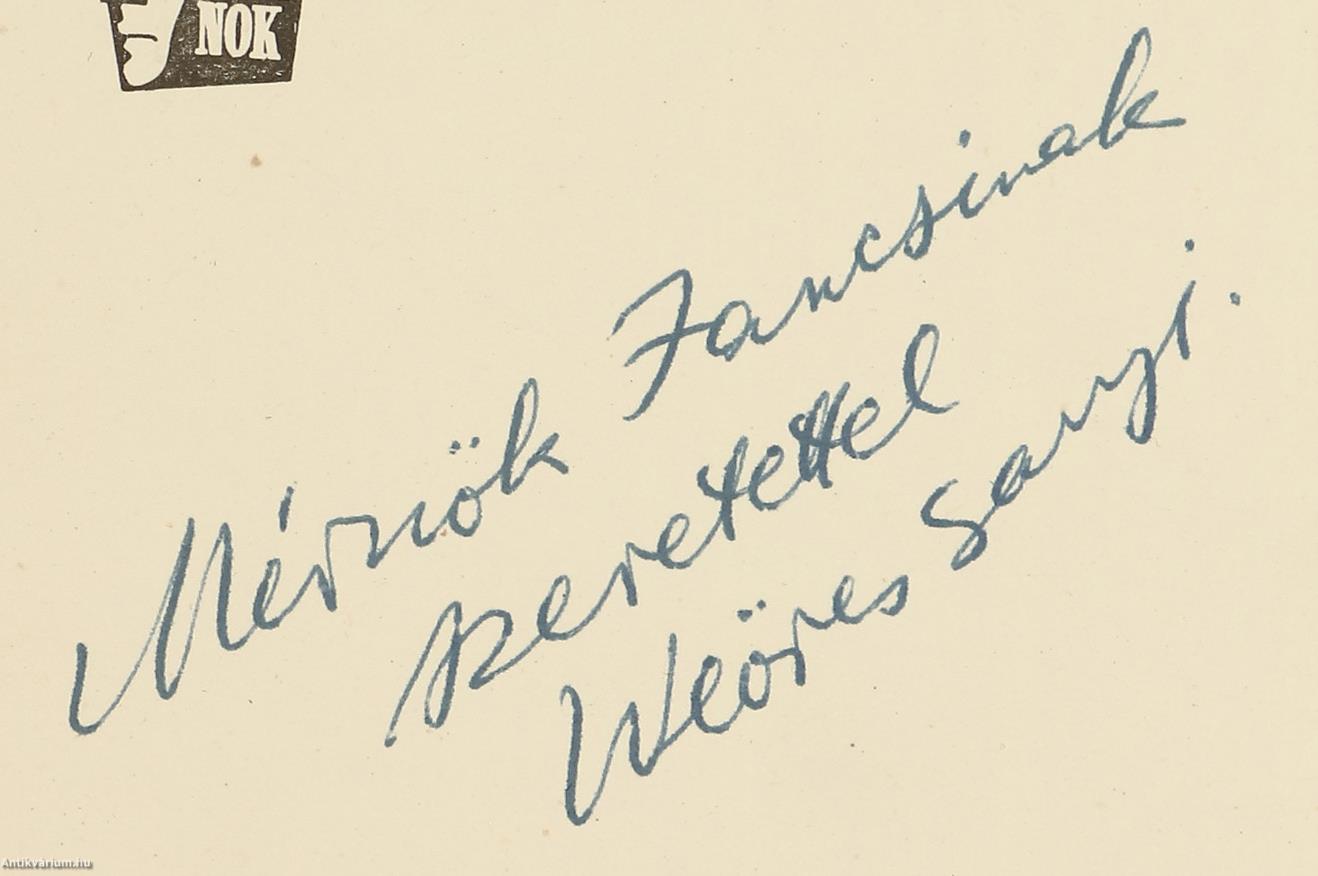 NOK
Mérnök Jancsinak
szeretettel
Weöres Sanyi.
Antikvárium.hu